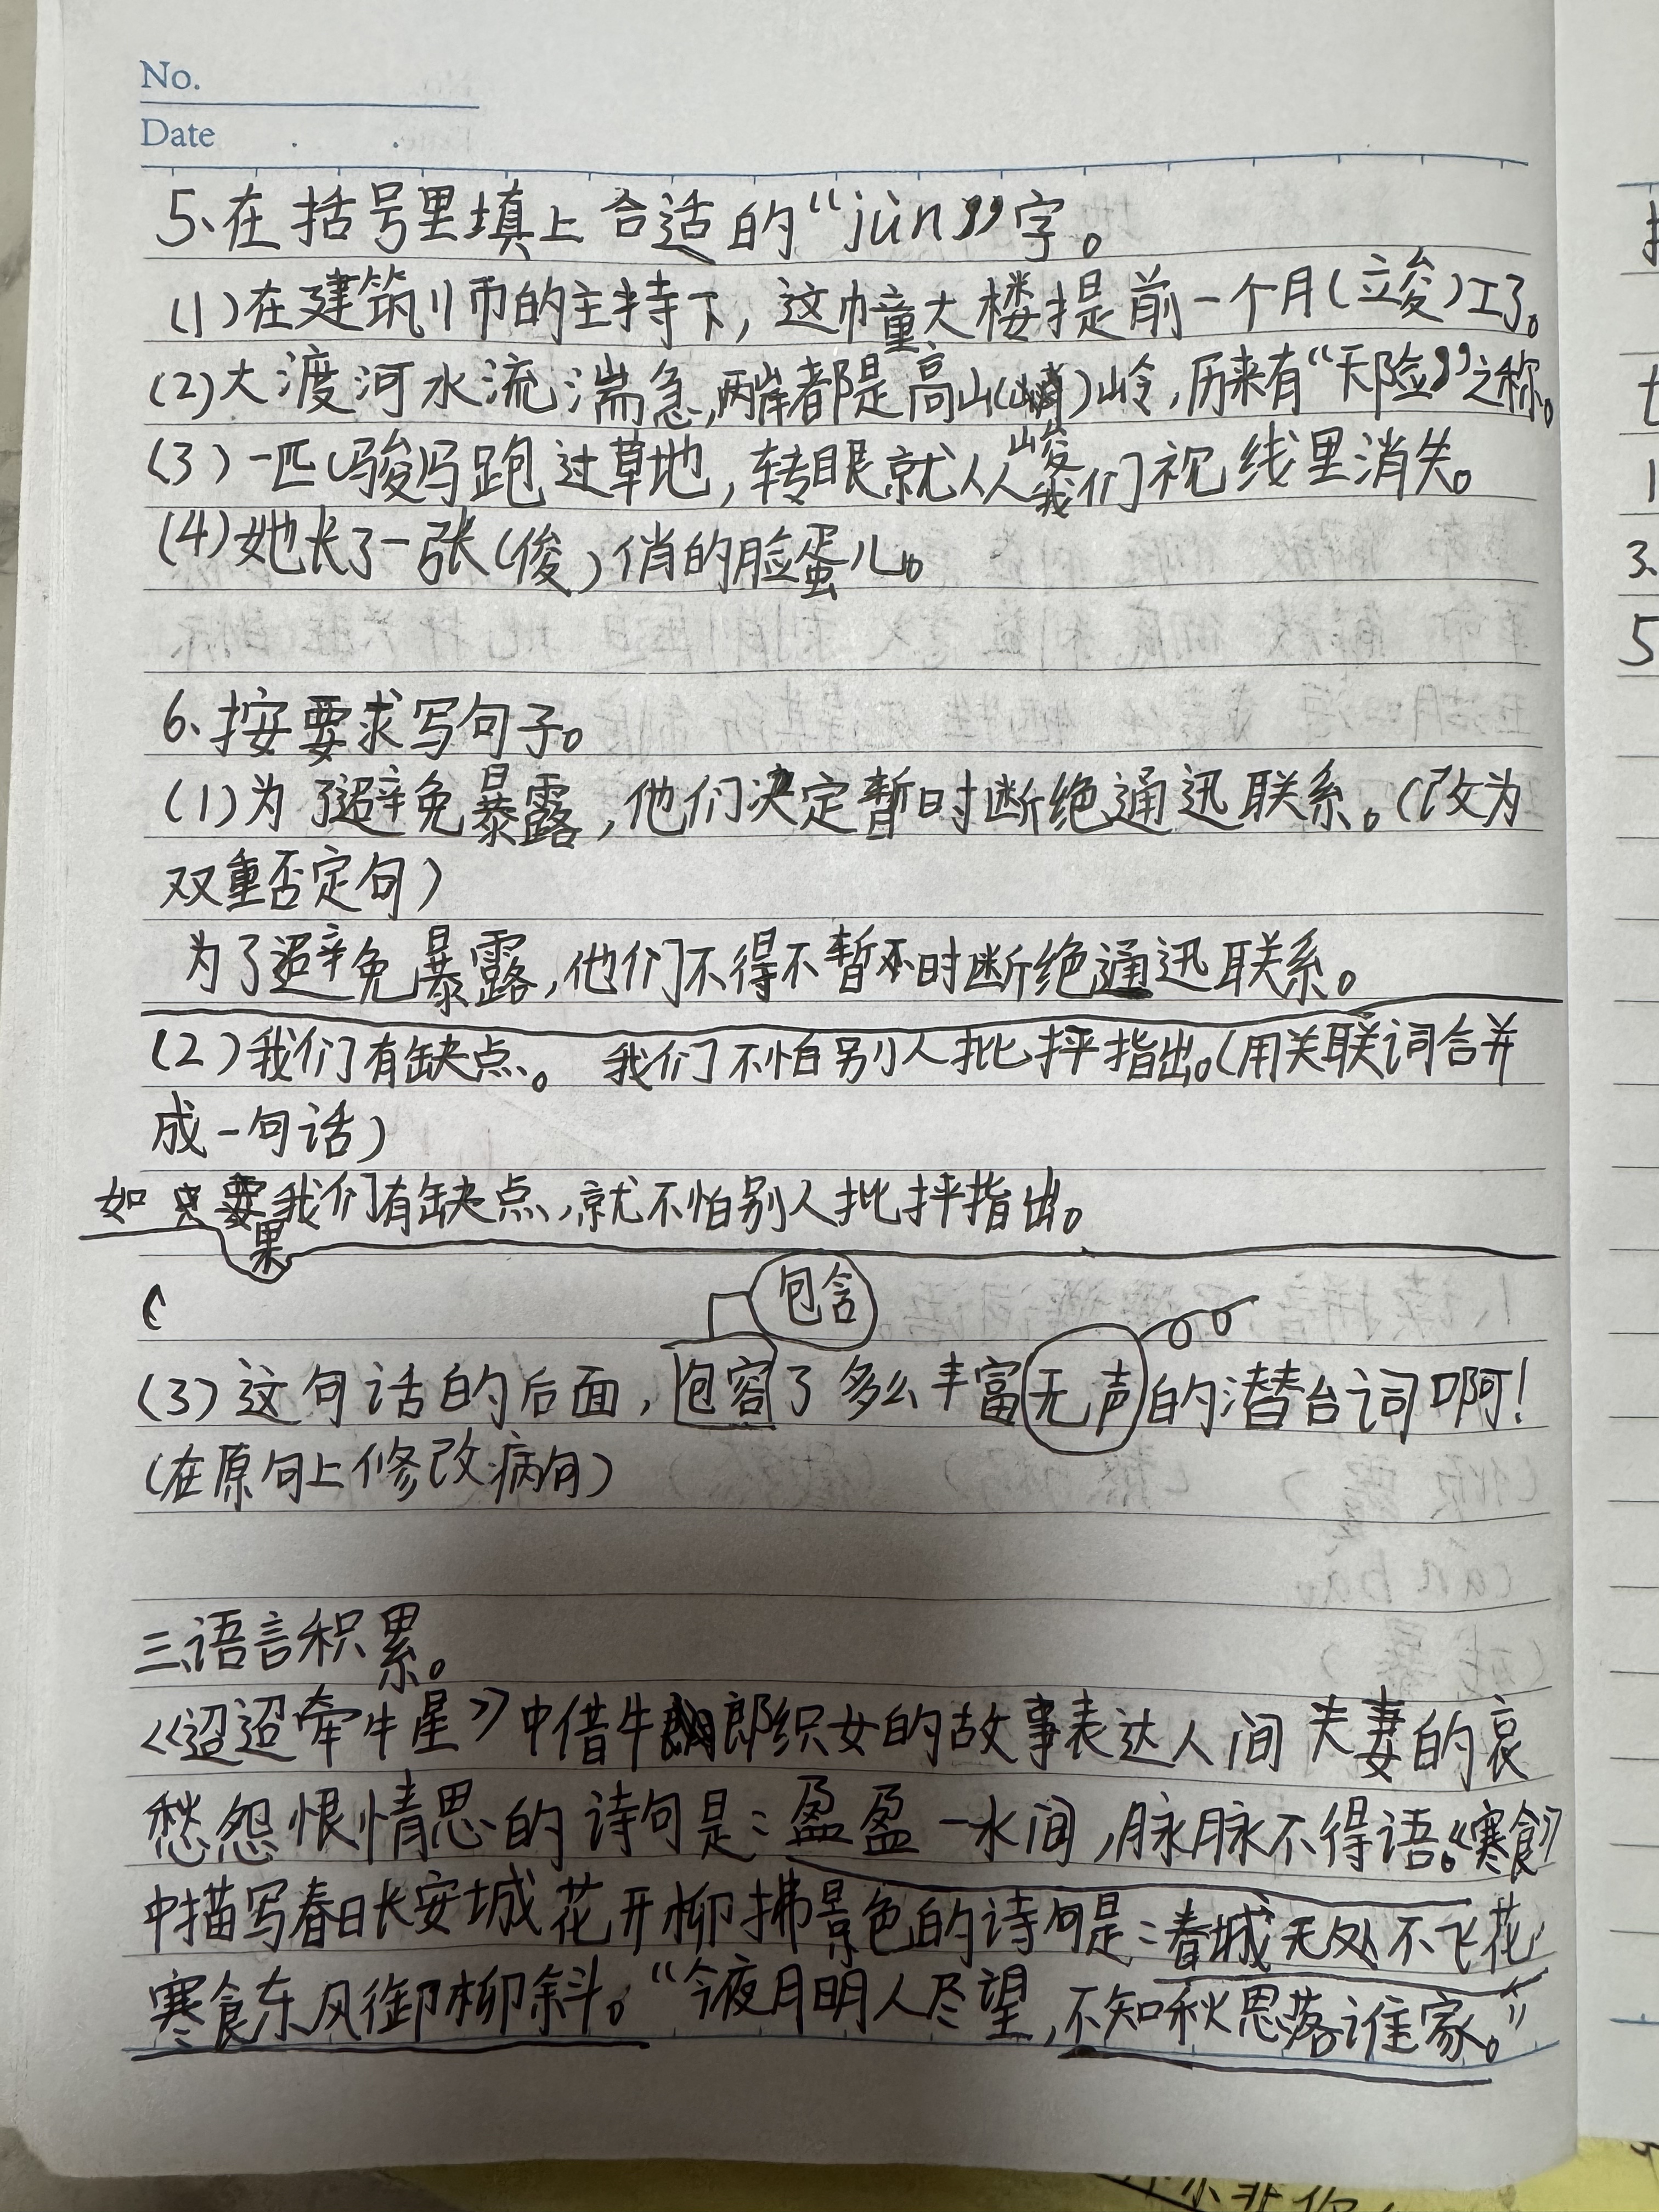 No.
Date
5、在括号里填上合适的“jùn”字。
(1)在建筑师的主持下，这幢大楼提前一个月(竣)工了。
(2)大渡河水流湍急，两岸都是高山(峻)岭，历来有“天险”之称。
(3)一匹(骏)马跑过草地，转眼就从我们视线里消失。
(4)她长了一张(俊)俏的脸蛋儿。
6、按要求写句子。
(1)为了避免暴露，他们决定暂时断绝通迅联系。(改为
双重否定句)
为了避免暴露，他们不得不暂时断绝通迅联系。
(2)我们有缺点。 我们不怕别人批抨指出。(用关联词合并
成一句话)
如果我们有缺点，就不怕别人批抨指出。
包含
(3)这句话的后面，包容了多么丰富无声的潜台词啊！
(在原句上修改病句)
三、语言积累。
《迢迢牵牛星》中借牛郎织女的故事表达人间夫妻的哀
愁怨恨情思的诗句是：盈盈一水间，脉脉不得语。《寒食》
中描写春日长安城花开柳拂景色的诗句是：春城无处不飞花，
寒食东风御柳斜。“今夜月明人尽望，不知秋思落谁家。”
3、
5